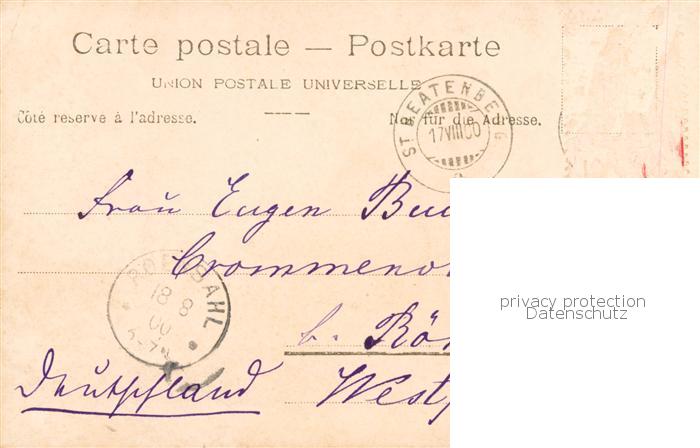 Carte postale — Postkarte
UNION POSTALE UNIVERSELLE
Côté réservé à l'adresse. Nur für die Adresse.
ST. BEATENBERG
17 VIII 00
Frau Eugen
Crommeno
ROENSAHL
18 8
00
b. Rön
Deutschland
West
privacy protection
Datenschutz